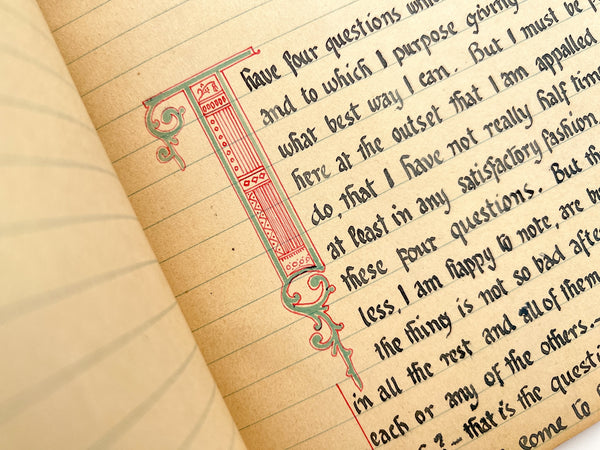 I have four questions
and to which I purpose giving
what best way I can. But I must be
here at the outset that I am appalled
do, that I have not really half time
at least in any satisfactory fashion
these four questions. But
less, I am happy to note, are
the thing is not so bad
in all the rest and all of them
each or any of the others.—
?— that is the
come to